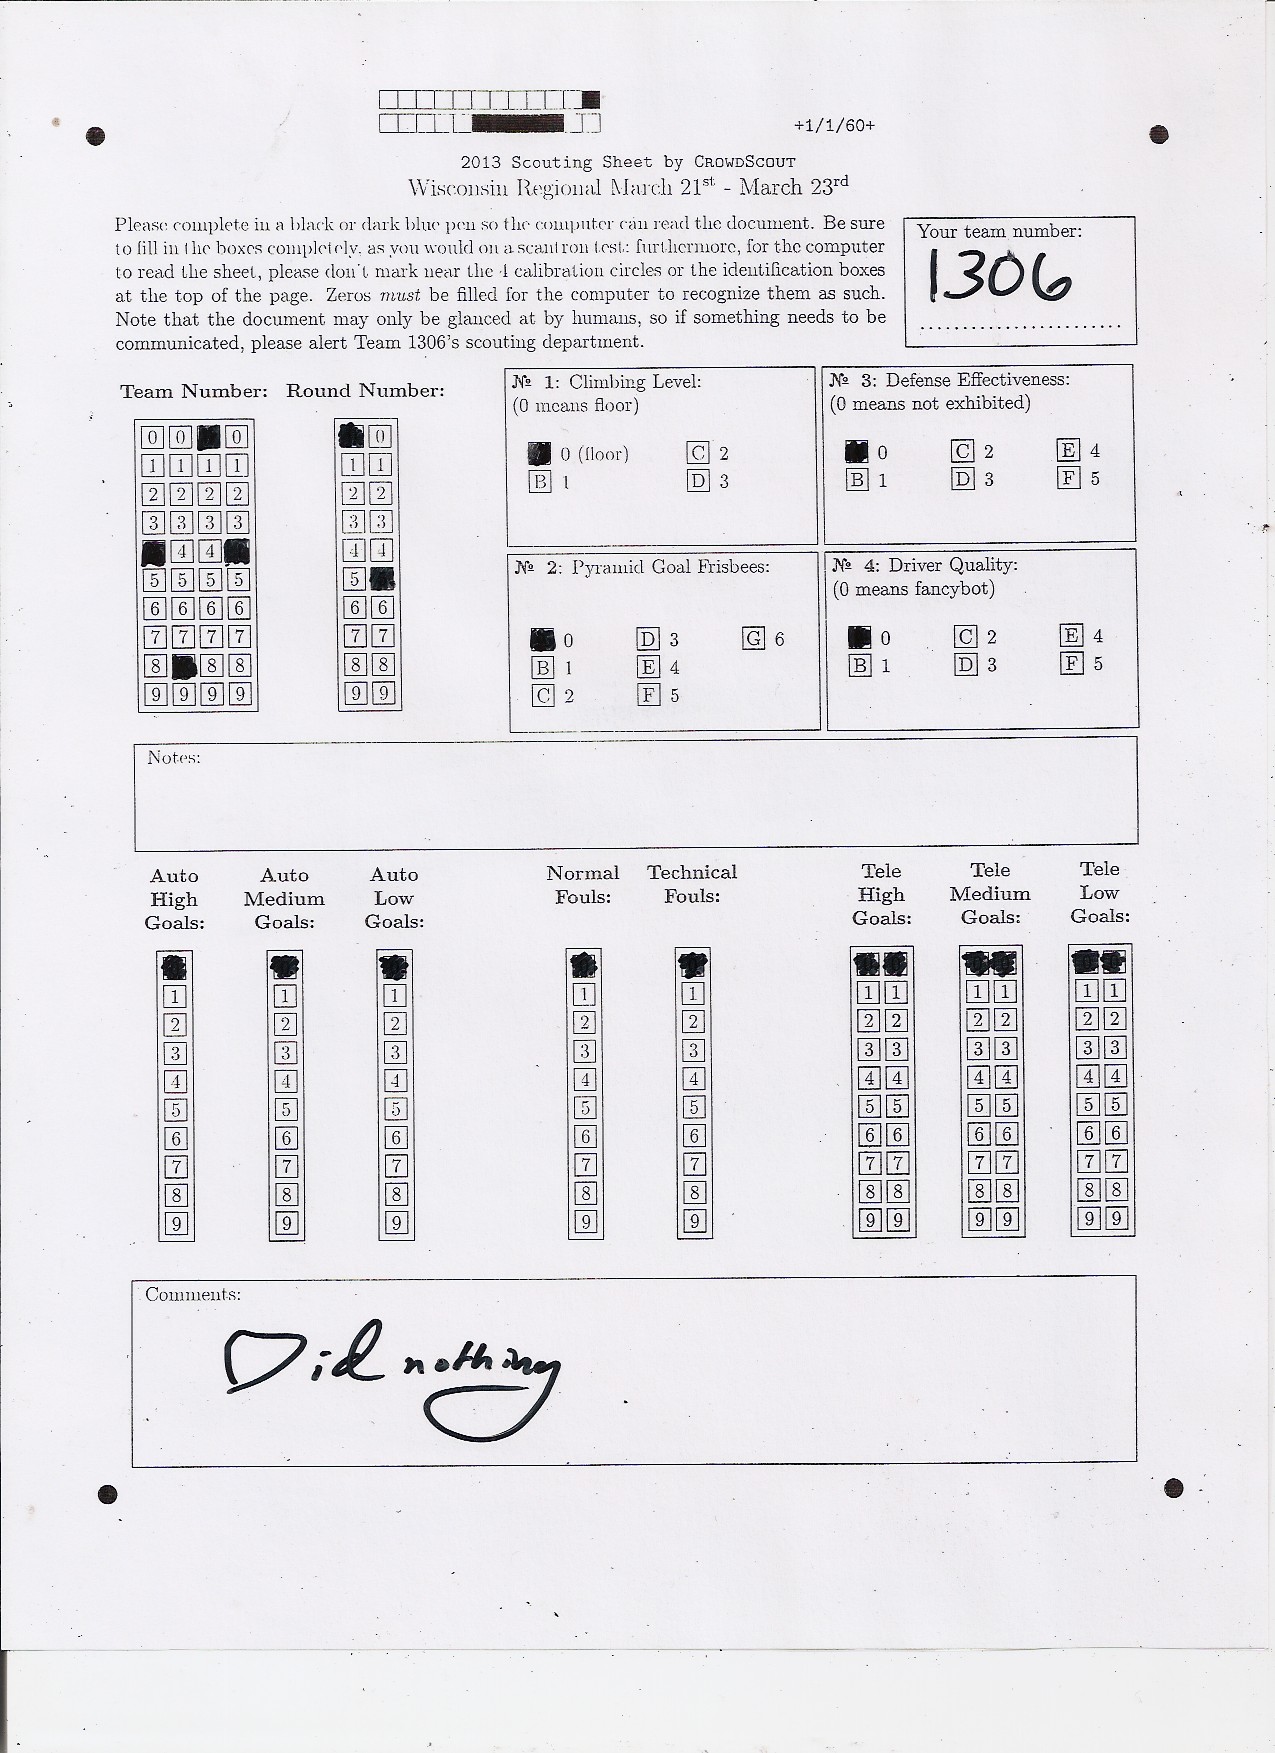 +1/1/60+
2013 Scouting Sheet by CROWDSCOUT
Wisconsin Regional March 21st - March 23rd
Please complete in a black or dark blue pen so the computer can read the document. Be sure
to fill in the boxes completely, as you would on a scantron test; furthermore, for the computer
to read the sheet, please don't mark near the 4 calibration circles or the identification boxes
at the top of the page. Zeros must be filled for the computer to recognize them as such.
Note that the document may only be glanced at by humans, so if something needs to be
communicated, please alert Team 1306's scouting department.
Your team number:
1306
Team Number: Round Number:
0 0 0 0
1 1 1 1 1 1
2 2 2 2 2 2
3 3 3 3 3 3
4 4 4 4
5 5 5 5 5
6 6 6 6 6 6
7 7 7 7 7 7
8 8 8 8 8
9 9 9 9 9 9
№ 1: Climbing Level:
(0 means floor)
0 (floor) C 2
B 1 D 3
№ 3: Defense Effectiveness:
(0 means not exhibited)
0 C 2 E 4
B 1 D 3 F 5
№ 2: Pyramid Goal Frisbees:
0 D 3 G 6
B 1 E 4
C 2 F 5
№ 4: Driver Quality:
(0 means fancybot)
0 C 2 E 4
B 1 D 3 F 5
Notes:
Auto High Goals: Auto Medium Goals: Auto Low Goals: Normal Fouls: Technical Fouls: Tele High Goals: Tele Medium Goals: Tele Low Goals:
1 1 1 1 1 1 1 1 1 1 1
2 2 2 2 2 2 2 2 2 2 2
3 3 3 3 3 3 3 3 3 3 3
4 4 4 4 4 4 4 4 4 4 4
5 5 5 5 5 5 5 5 5 5 5
6 6 6 6 6 6 6 6 6 6 6
7 7 7 7 7 7 7 7 7 7 7
8 8 8 8 8 8 8 8 8 8 8
9 9 9 9 9 9 9 9 9 9 9
Comments:
Did nothing